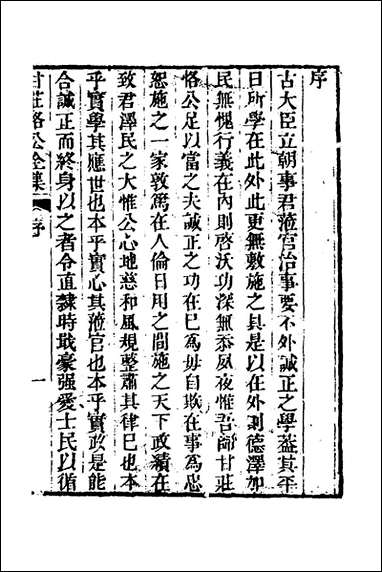 序
古大臣立朝事君蒞官治事要不外誠正之學葢其平
日所學在此外此更無敷施之具是以在外則德澤加
民無愧行義在內則啓沃功深無忝夙夜惟吾師甘莊
恪公足以當之夫誠正之功在已爲毋自欺在事爲忠
恕施之一家敦篤在人倫日用之間施之天下政績在
致君澤民之大惟公心地慈和風規整肅其律已也本
乎實學其應世也本乎實心其蒞官也本乎實政是能
合誠正而終身以之者令直隸時戢豪强愛士民以循
甘莊恪公全集
序
一